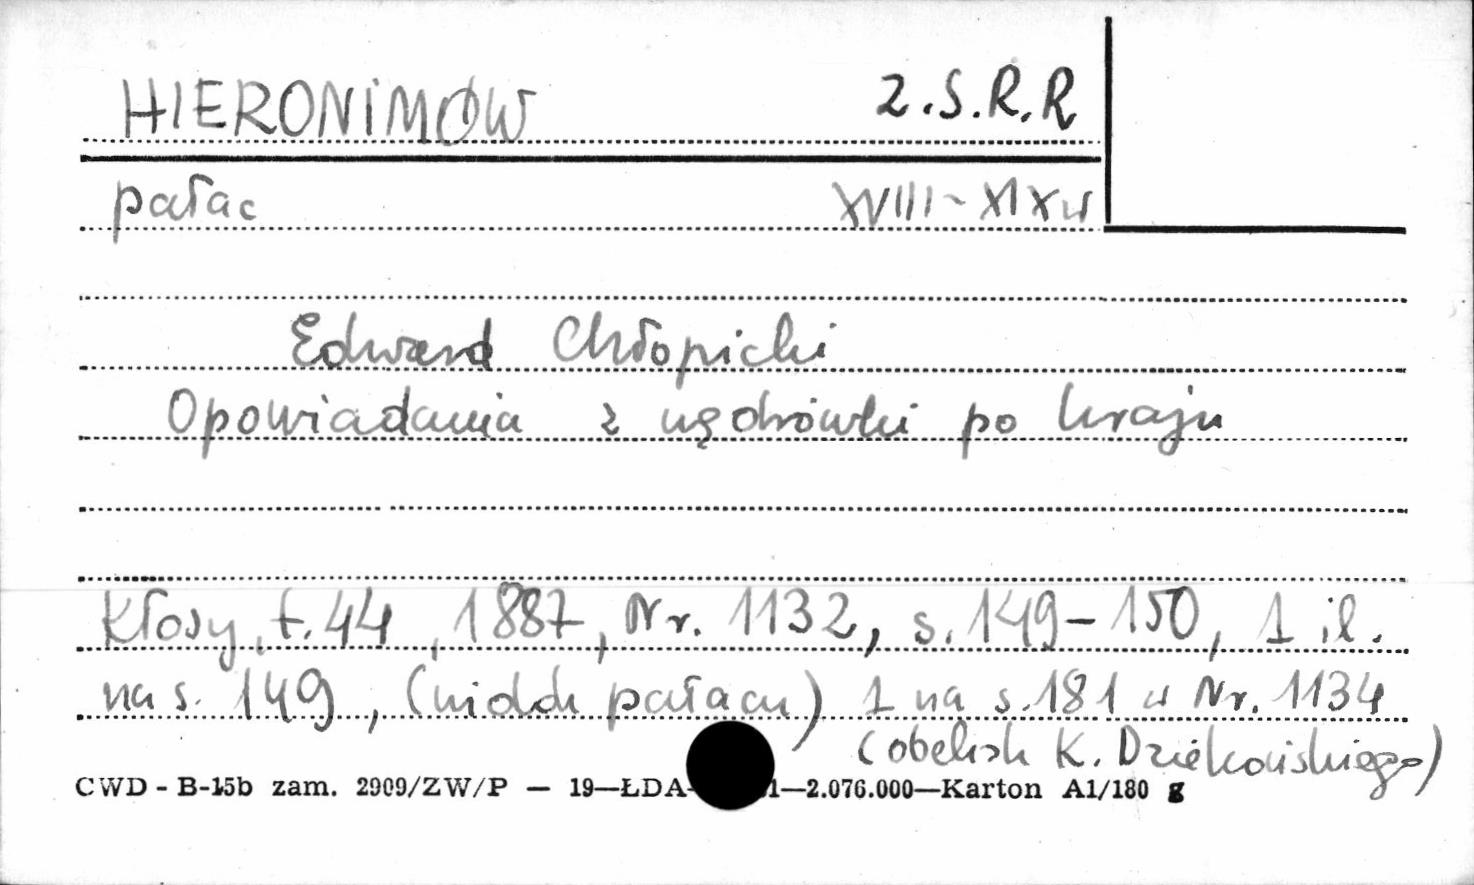 HIERONIMÓW Z.S.R.R
pałac XVIII-XIX w
Edward Chłopicki
Opowiadania z wędrówki po kraju
Kłosy, t. 44, 1887, Nr. 1132, s. 149-150, 1 il.
na s. 149, (widok pałacu) 1 na s. 181 w Nr. 1134
(obelisk K. Dziekońskiego)
CWD - B-15b zam. 2909/ZW/P — 19—ŁDA- 1—2.076.000—Karton A1/180 g